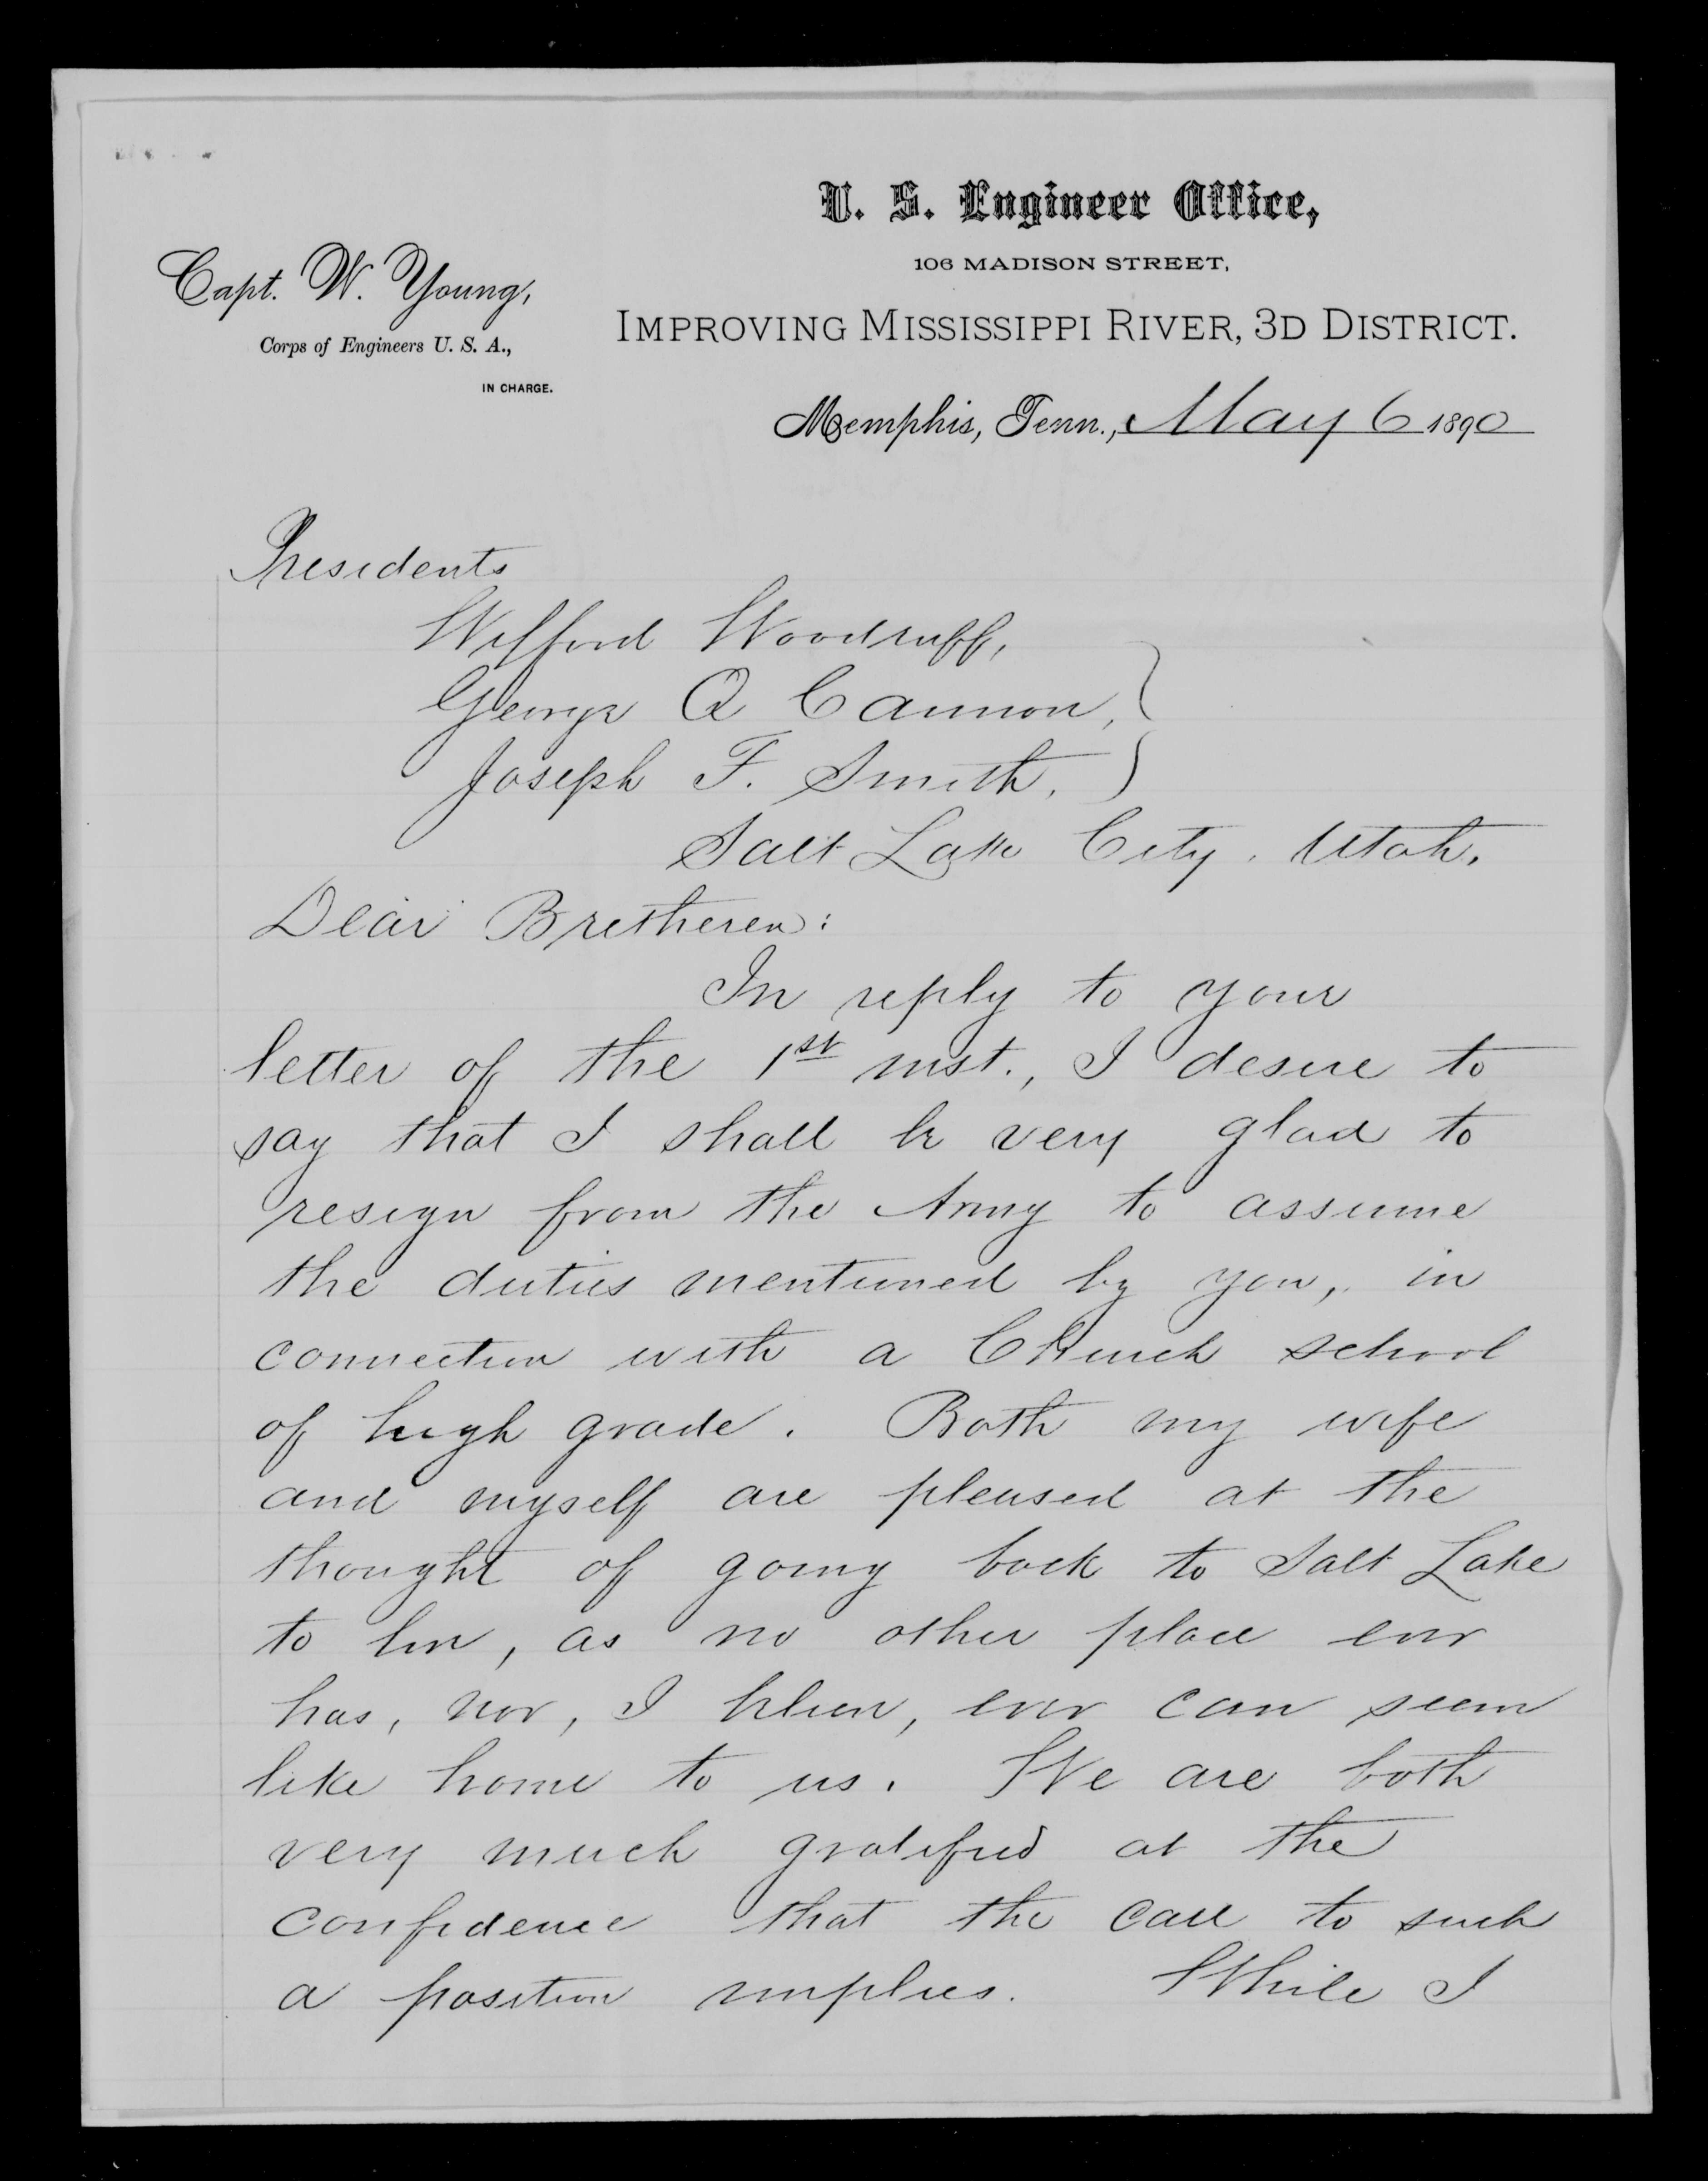 U. S. Engineer Office,
106 MADISON STREET,
Capt. W. Young,
Corps of Engineers U. S. A.,
IN CHARGE.
IMPROVING MISSISSIPPI RIVER, 3D DISTRICT.
Memphis, Tenn., May 6 1890
Presidents
Wilford Woodruff,
George Q Cannon,
Joseph F. Smith,
Salt Lake City, Utah.
Dear Bretheren:
In reply to your
letter of the 1st inst., I desire to
say that I shall be very glad to
resign from the Army to assume
the duties mentioned by you, in
connection with a Church school
of high grade. Both my wife
and myself are pleased at the
thought of going back to Salt Lake
to live, as no other place ever
has, nor, I believe, ever can seem
like home to us. We are both
very much gratified at the
confidence that the call to such
a position implies. While I